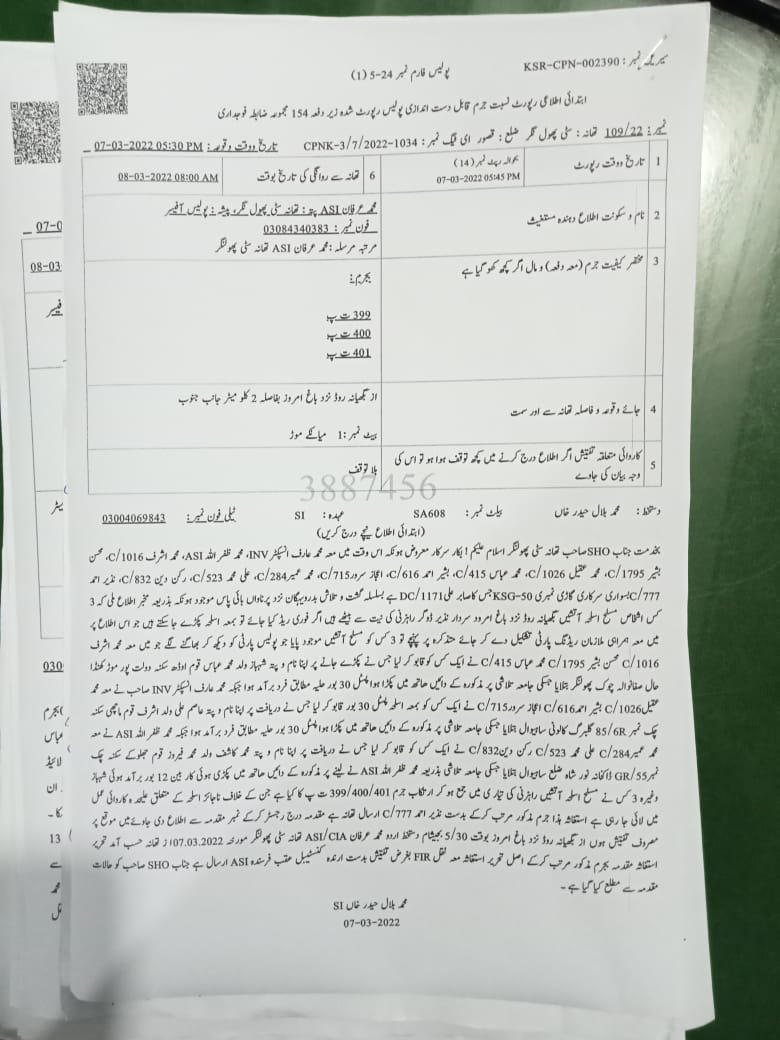 سیریل نمبر : KSR-CPN-002390
پولیس فارم نمبر 24-5 (1)
ابتدائی اطلاعی رپورٹ نسبت جرم قابل دست اندازی پولیس رپورٹ شدہ زیر دفعہ 154 مجموعہ ضابطہ فوجداری
نمبر : 109/22 تھانہ : سٹی پھول نگر ضلع : قصور ای ٹیگ نمبر : CPNK-3/7/2022-1034 تاریخ و وقت وقوعہ : 07-03-2022 05:30 PM
1 تاریخ و وقت رپورٹ
بحوالہ رپٹ نمبر (14)
07-03-2022 05:45 PM
6 تھانہ سے روانگی کی تاریخ بوقت
08-03-2022 08:00 AM
2 نام و سکونت اطلاع دہندہ مستغیث
محمد عرفان ASI پتہ : تھانہ سٹی پھول نگر، پیشہ : پولیس آفیسر
فون نمبر : 03084340383
مرتبہ مرسلہ : محمد عرفان ASI تھانہ سٹی پھولنگر
3 مختصر کیفیت جرم (معہ دفعہ) و مال اگر کچھ کھو گیا ہے
بجرم :
399 ت پ
400 ت پ
401 ت پ
4 جائے وقوعہ و فاصلہ تھانہ سے اور سمت
از جمبھیانہ روڈ نزد باغ امروز بفاصلہ 2 کلو میٹر جانب جنوب
بیٹ نمبر :1 میانکے موڑ
5 کاروائی متعلقہ تفتیش اگر اطلاع درج کرنے میں کچھ توقف ہوا ہو تو اس کی
وجہ بیان کی جاوے
بلا توقف
3887456
دستخط : محمد بلال حیدر خاں بیلٹ نمبر : SA608 عہدہ : SI ٹیلی فون نمبر : 03004069843
(ابتدائی اطلاع نیچے درج کریں)
بخدمت جناب SHO صاحب تھانہ سٹی پھولنگر اسلام علیکم! بکار سرکار معروض ہونکہ اس وقت میں معہ محمد عارف انسپکٹر INV، محمد ظفر اللہ ASI، محمد اشرف C/1016، محسن
بشیر C/1795، محمد عقیل C/1026، محمد عباس C/415، بشیر احمد C/616، اعجاز سرور C/715، محمد عمیر C/284، علی محمد C/523، رکن دین C/832، نذیر احمد
C/777 بسواری سرکاری گاڑی نمبری KSG-50 جس کا صابر علی DC/1171 بسلسلہ گشت و تلاش بدرویہگان نزد پرناواں بائی پاس موجود ہونکہ بذریعہ مخبر اطلاع ملی کہ 3
کس اشخاص مسلح اسلحہ آتشیں جمبھیانہ روڈ نزد باغ امرود سردار نذیر ڈوگر راہزنی کی نیت سے بیٹھے ہیں اگر فوری ریڈ کیا جائے تو بمعہ اسلحہ پکڑے جا سکتے ہیں جو اس اطلاع پر
میں معہ ہمراہی ملازمان ریڈنگ پارٹی تشکیل دے کر جائے متذکرہ پر پہنچے تو 3 کس کو مسلح آتشیں موجود پایا جو پولیس پارٹی کو دیکھ کر بھاگنے لگے جو میں معہ محمد اشرف
C/1016 محسن بشیر C/1795 محمد عباس C/415 نے ایک کس کو قابو کر لیا جس نے پکڑے جانے پر اپنا نام و پتہ شہباز ولد محمد عباس قوم اوڈھ سکنہ دولت پور موڑ کھنڈا
حال صفانوالہ چوک پھولنگر بتلایا جسکی جامعہ تلاشی پر مذکورہ کے دائیں ھاتھ میں پکڑا ہوا پسٹل 30 بور حلیہ مطابق فرد برآمد ہوا جبکہ محمد عارف انسپکٹر INV صاحب نے معہ محمد
عقیل C/1026 بشیر احمد C/616 اعجاز سرور C/715 نے ایک کس کو بمعہ اسلحہ پسٹل 30 بور قابو کر لیا جس نے دریافت پر اپنا نام و پتہ عاصم علی ولد اشرف قوم ماچھی سکنہ
چک نمبر 85/6R گلبرگ کالونی ساہیوال بتلایا جسکی جامعہ تلاشی پر مذکورہ کے دائیں ھاتھ میں پکڑا ہوا پسٹل 30 بور حلیہ مطابق فرد برآمد ہوا جبکہ محمد ظفر اللہ ASI نے معہ
محمد عمیر C/284 علی محمد C/523 رکن دین C/832 نے ایک کس کو قابو کر لیا جس نے دریافت پر اپنا نام و پتہ محمد کاشف ولد محمد فیروز قوم جھلوکے سکنہ چک
نمبر 55/GR ڈاکخانہ نور شاہ ضلع ساہیوال بتلایا جسکی جامعہ تلاشی بذریعہ محمد ظفر اللہ ASI نے لینے پر مذکورہ کے دائیں ھاتھ میں پکڑی ہوئی کاربین 12 بور برآمد ہوئی شہباز
وغیرہ 3 کس نے مسلح اسلحہ آتشیں راہزنی کی تیاری میں جمع ہو کر ارتکاب جرم 399/400/401 ت پ کا کیا ہے جن کے خلاف ناجائز اسلحہ کے متعلق علیحدہ کاروائی عمل
میں لائی جا رہی ہے استغاثہ ہذا جرم مذکور مرتب کر کے بدست نذیر احمد C/777 ارسال تھانہ ہے مقدمہ درج رجسٹر کر کے نمبر مقدمہ سے اطلاع دی جاوے میں موقع پر
مصروف تفتیش ہوں از جمبھیانہ روڈ نزد باغ امروز بوقت 5/30 بجے شام دستخط اردو محمد عرفان ASI/CIA تھانہ سٹی پھولنگر مورخہ 07.03.2022 از تھانہ حسب آمد تحریر
استغاثہ مقدمہ بجرم مذکور مرتب کر کے اصل تحریر استغاثہ معہ نقل FIR بغرض تفتیش بدست ارندہ کنسٹیبل عقب فرستندہ ASI ارسال ہے جناب SHO صاحب کو حالات
مقدمہ سے مطلع کیا گیا ہے -
محمد بلال حیدر خاں SI
07-03-2022